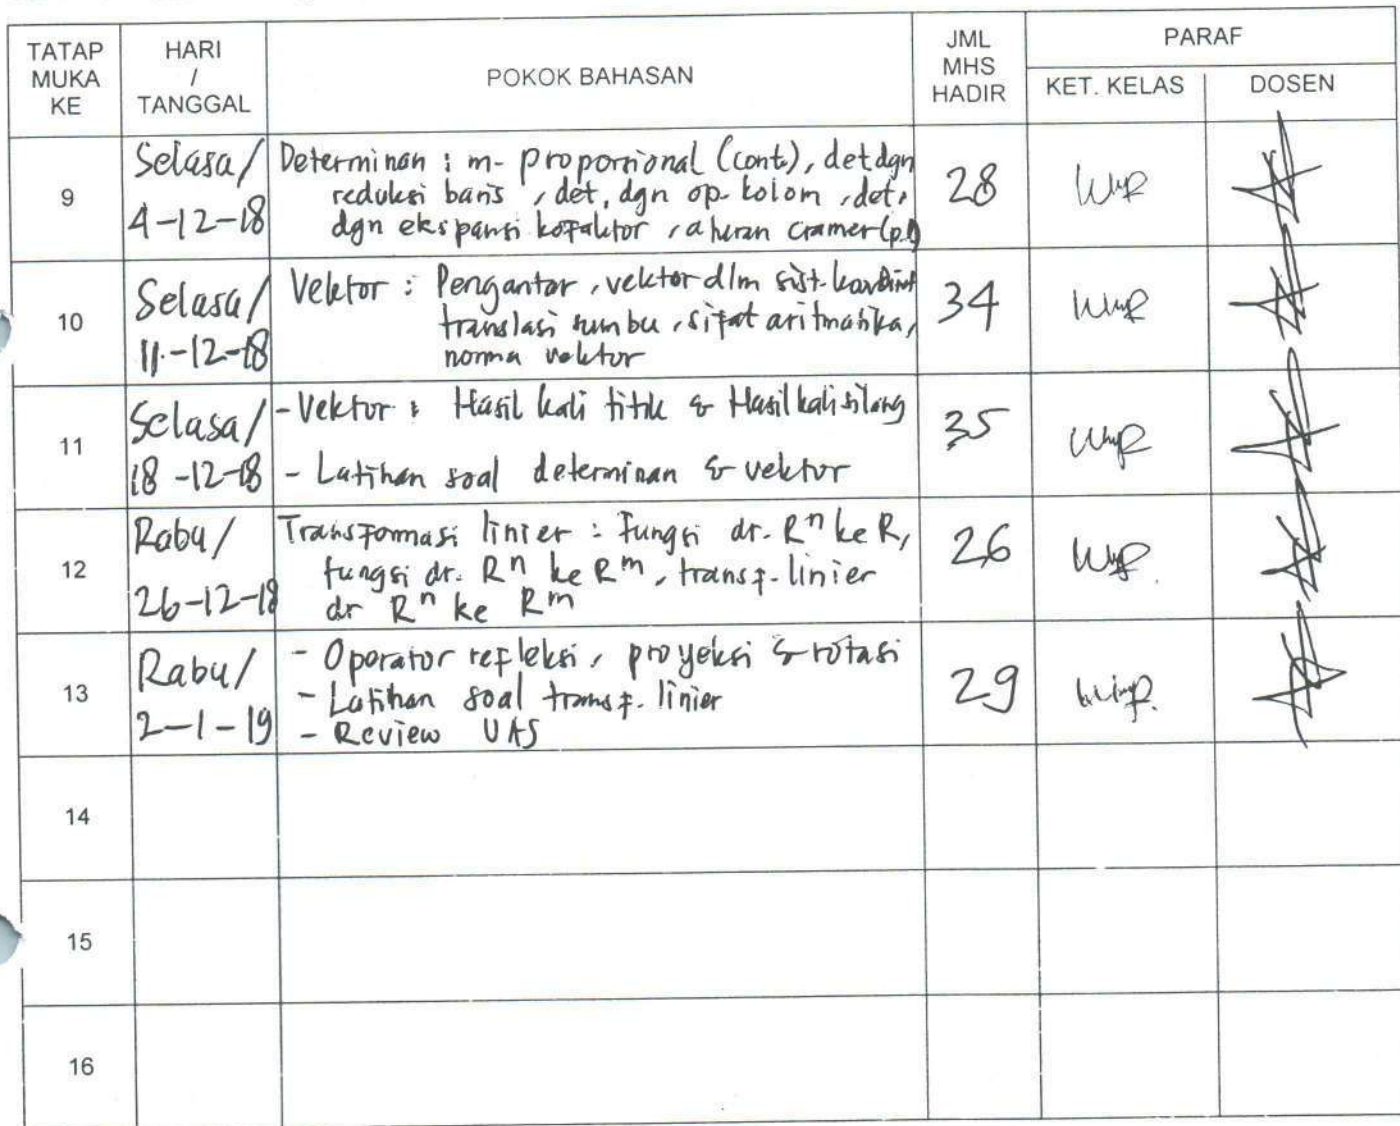 TATAP MUKA KE
HARI / TANGGAL
POKOK BAHASAN
JML MHS HADIR
PARAF
KET. KELAS
DOSEN
9
Selasa/
4-12-18
Determinan : m- proporsional (cont), det dgn
reduksi baris, det, dgn op. kolom, det,
dgn ekspansi kofaktor, aturan cramer
28
10
Selasa/
11-12-18
Vektor : Pengantar, vektor dlm sist.
translasi sumbu, sifat aritmatika,
norma vektor
34
11
Selasa/
18-12-18
- Vektor : Hasil kali titik & Hasil kali silang
- Latihan soal determinan & vektor
35
12
Rabu/
26-12-18
Transformasi linier : Fungsi dr. Rⁿ ke R,
fungsi dr. Rⁿ ke Rᵐ, transf. linier
dr Rⁿ ke Rᵐ
26
13
Rabu/
2-1-19
- Operator refleksi, proyeksi & rotasi
- Latihan soal transf. linier
- Review UAS
29
14
15
16